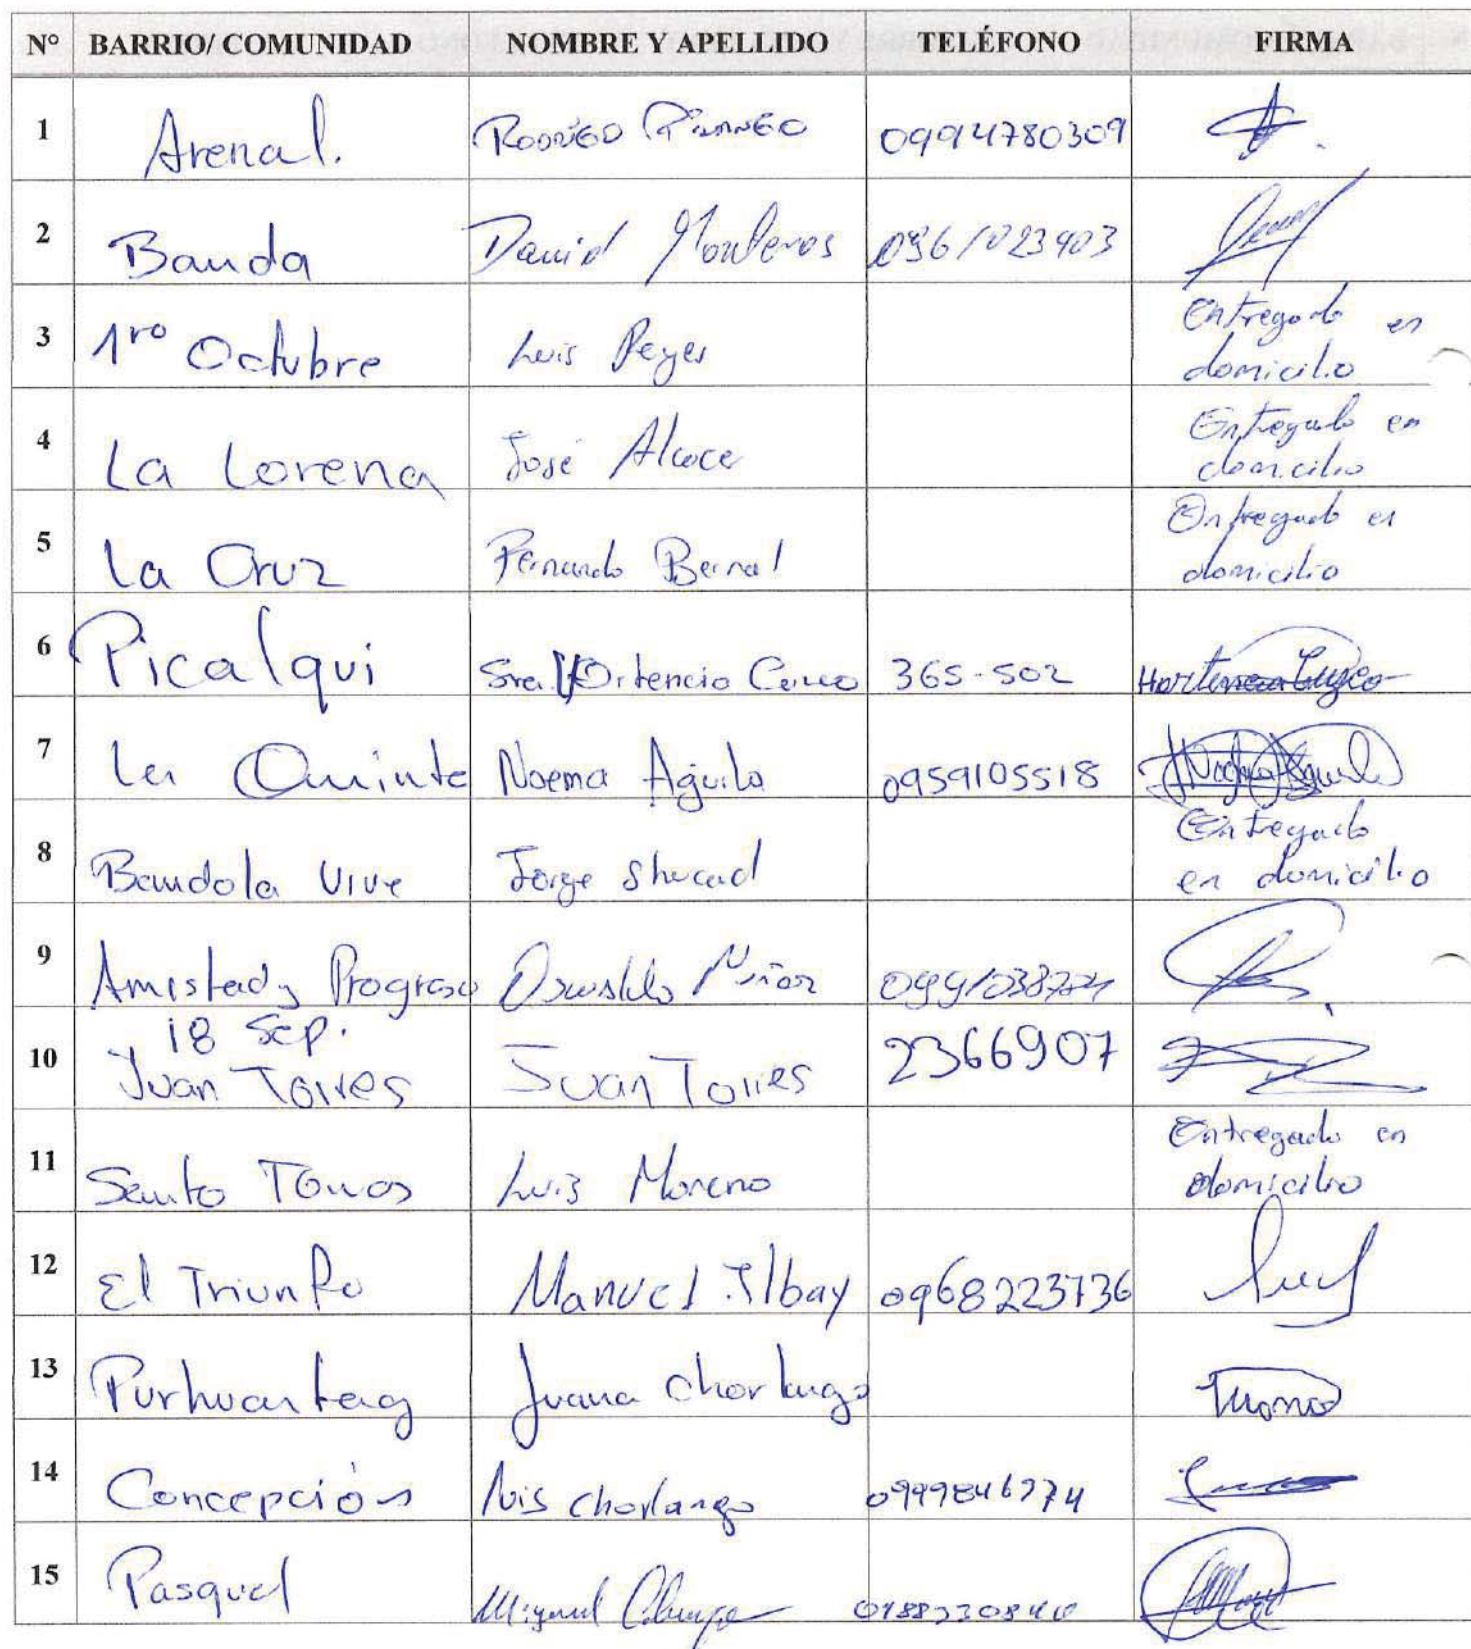 N° BARRIO/ COMUNIDAD NOMBRE Y APELLIDO TELÉFONO FIRMA
1 Arenal. Rodrigo 0994780309
2 Banda David Monteros 0961023403
3 1ro Octubre Luis Reyes Entregado en
domicilio
4 La Lorena José Alcocer Entregado en
domicilio
5 La Cruz Fernando Bernal Entregado en
domicilio
6 Picalqui Sra. Ortencio 365-502 Hortencia Cuzco
7 La Quinta Noema Aguila 0959105518
8 Bandola Vive Jorge Entregado
en domicilio
9 Amistad y Progreso Oswaldo
18 Sep.
10 Juan Torres Juan Torres 2366907
11 Santo Tomas Luis Moreno Entregado en
domicilio
12 El Triunfo Manuel Ilbay 0968223736
13 Purhuantag Juana Chorlango
14 Concepción Luis Chorlango
15 Pasquel Miguel